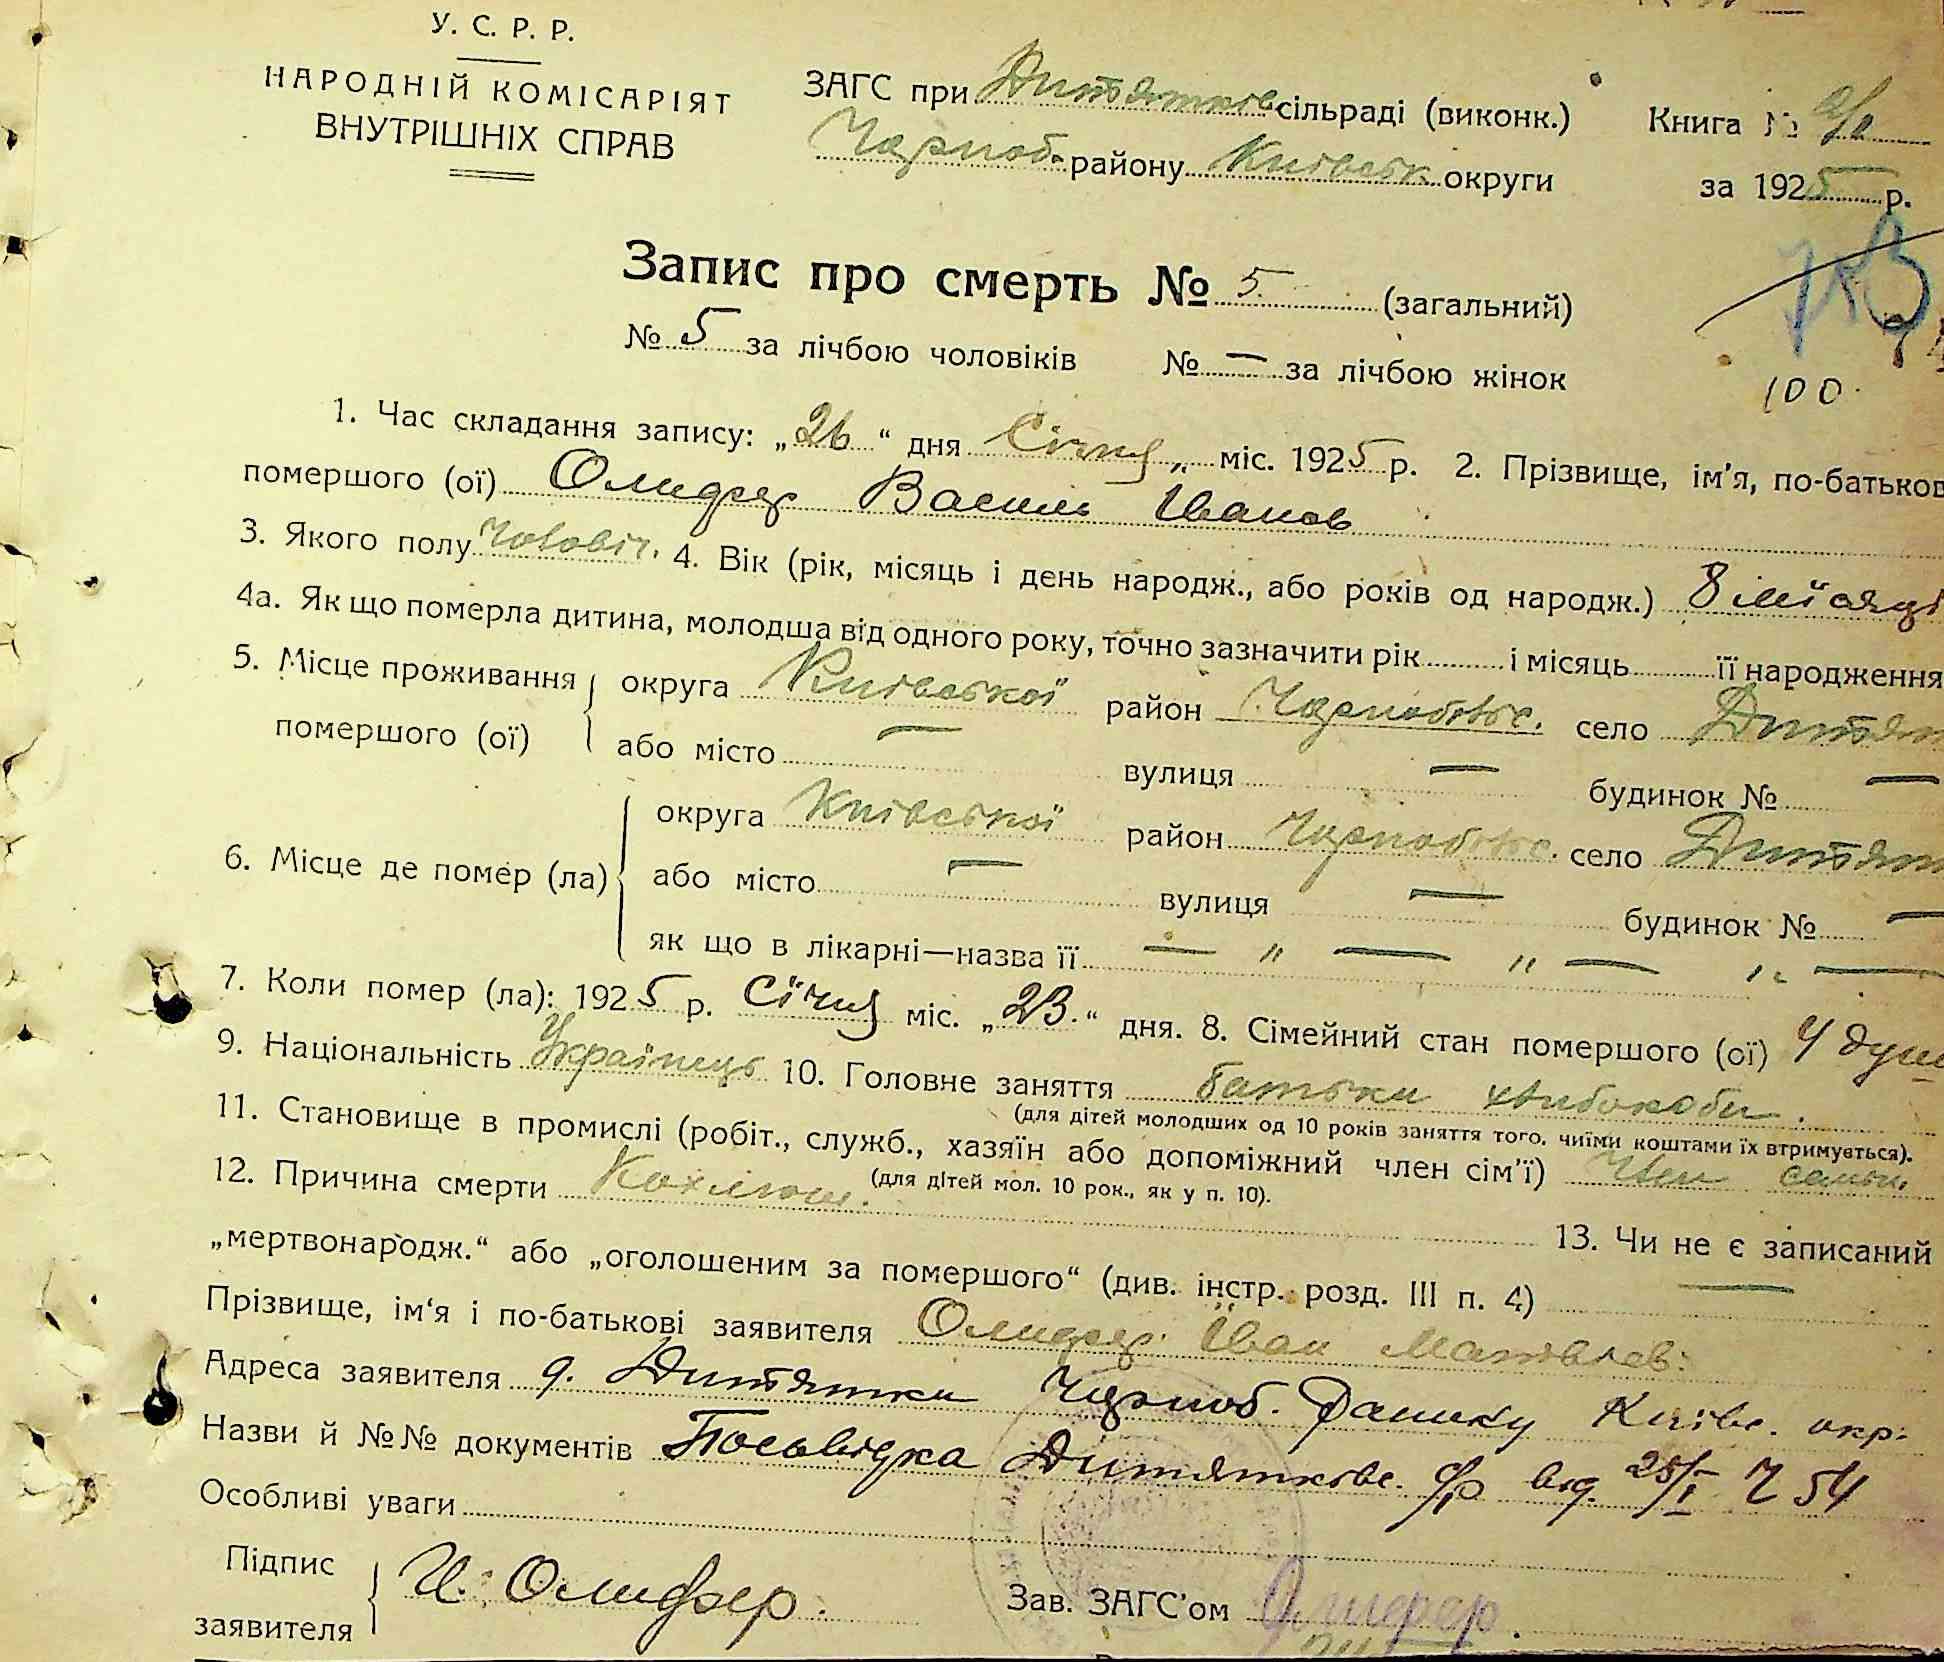 У. С. Р. Р.
НАРОДНІЙ КОМІСАРІЯТ
ВНУТРІШНІХ СПРАВ
ЗАГС при Дитятків сільраді (виконк.)
Чорноб. району Київськ. округи
Книга №
за 1925 р.
Запис про смерть № 5. (загальний)
№ 5 за лічбою чоловіків № — за лічбою жінок
100.
1. Час складання запису: „26“ дня Січня „ міс. 1925 р. 2. Прізвище, ім'я, по-батьков
помершого (ої) Олифер Василь Іванов
3. Якого полу Чоловіч. 4. Вік (рік, місяць і день народж., або років од народж.) 8 місяці
4а. Як що померла дитина, молодша від одного року, точно зазначити рік і місяць її народження
5. Місце проживання помершого (ої) округа Київської район Чорнобильс. село Дитят
або місто — вулиця — будинок № —
6. Місце де помер (ла) округа Київської район Чорнобильс. село Дитят
або місто — вулиця — будинок № —
як що в лікарні—назва її — „ — „ — „ —
7. Коли помер (ла): 1925 р. Січня міс. „23.“ дня. 8. Сімейний стан помершого (ої) 4 душ
9. Національність Українець 10. Головне заняття батьки хлібороби.
(для дітей молодших од 10 років заняття того, чиїми коштами їх втримується).
11. Становище в промислі (робіт., служб., хазяїн або допоміжний член сім'ї) Член семьи.
(для дітей мол. 10 рок., як у п. 10).
12. Причина смерти Кохлюш. 13. Чи не є записаний
„мертвонародж.“ або „оголошеним за помершого“ (див. інстр. розд. III п. 4) —
Прізвище, ім'я і по-батькові заявителя Олифер Іван Матвіев.
Адреса заявителя д. Дитятки Чорноб. Району Київс. окр.
Назви й №№ документів Посьвідка Дитятківс. с/р від. 25/I Ч 54
Особливі уваги
Підпис заявителя И. Олифер.
Зав. ЗАГС'ом Олифер.